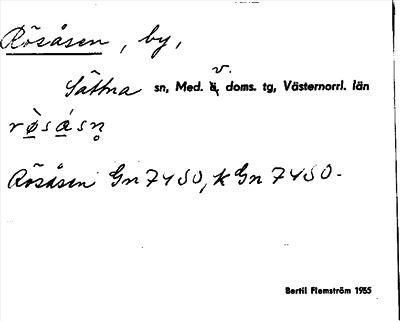 Rösåsen, by,
Sättna sn, Med. v. doms. tg, Västernorrl. län
rø̀sásn̥
Rösåsen Gn 7450, k Gn 7450.
Bertil Flemström 1955